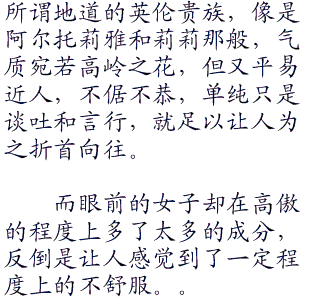 所谓地道的英伦贵族，像是
阿尔托莉雅和莉莉那般，气
质宛若高岭之花，但又平易
近人，不倨不恭，单纯只是
谈吐和言行，就足以让人为
之折首向往。
而眼前的女子却在高傲
的程度上多了太多的成分，
反倒是让人感觉到了一定程
度上的不舒服。。